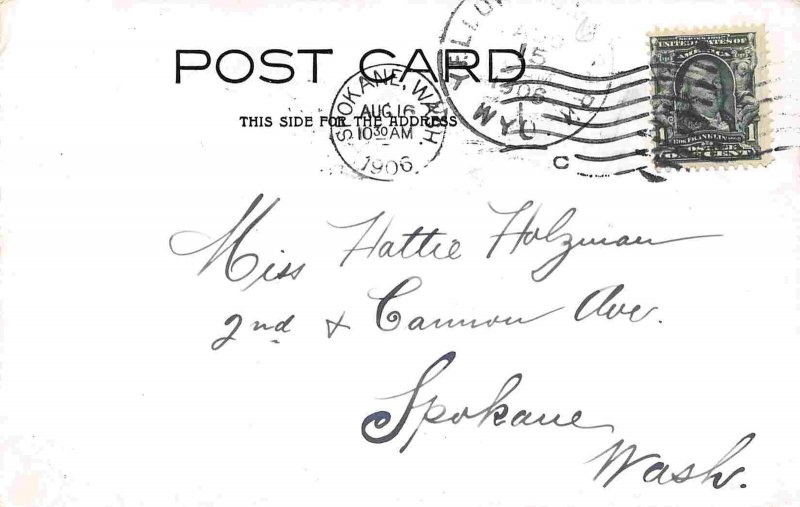 POST CARD
THIS SIDE FOR THE ADDRESS
SPOKANE, WASH.
AUG 16
1030 AM
1906
1906
WYO
UNITED STATES OF AMERICA
1 FRANKLIN 1
ONE CENT
Miss Hattie Holzman
2nd & Cannon Ave.
Spokane
Wash.